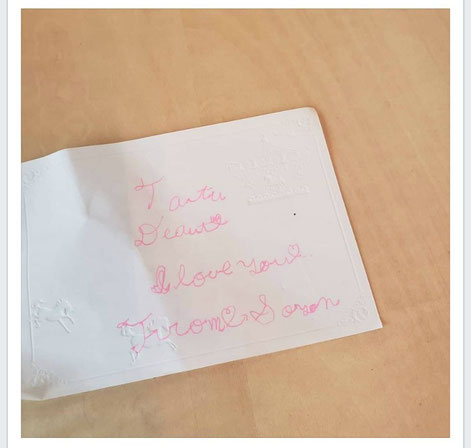 Tantu
Deaur
I love you
From Sozan